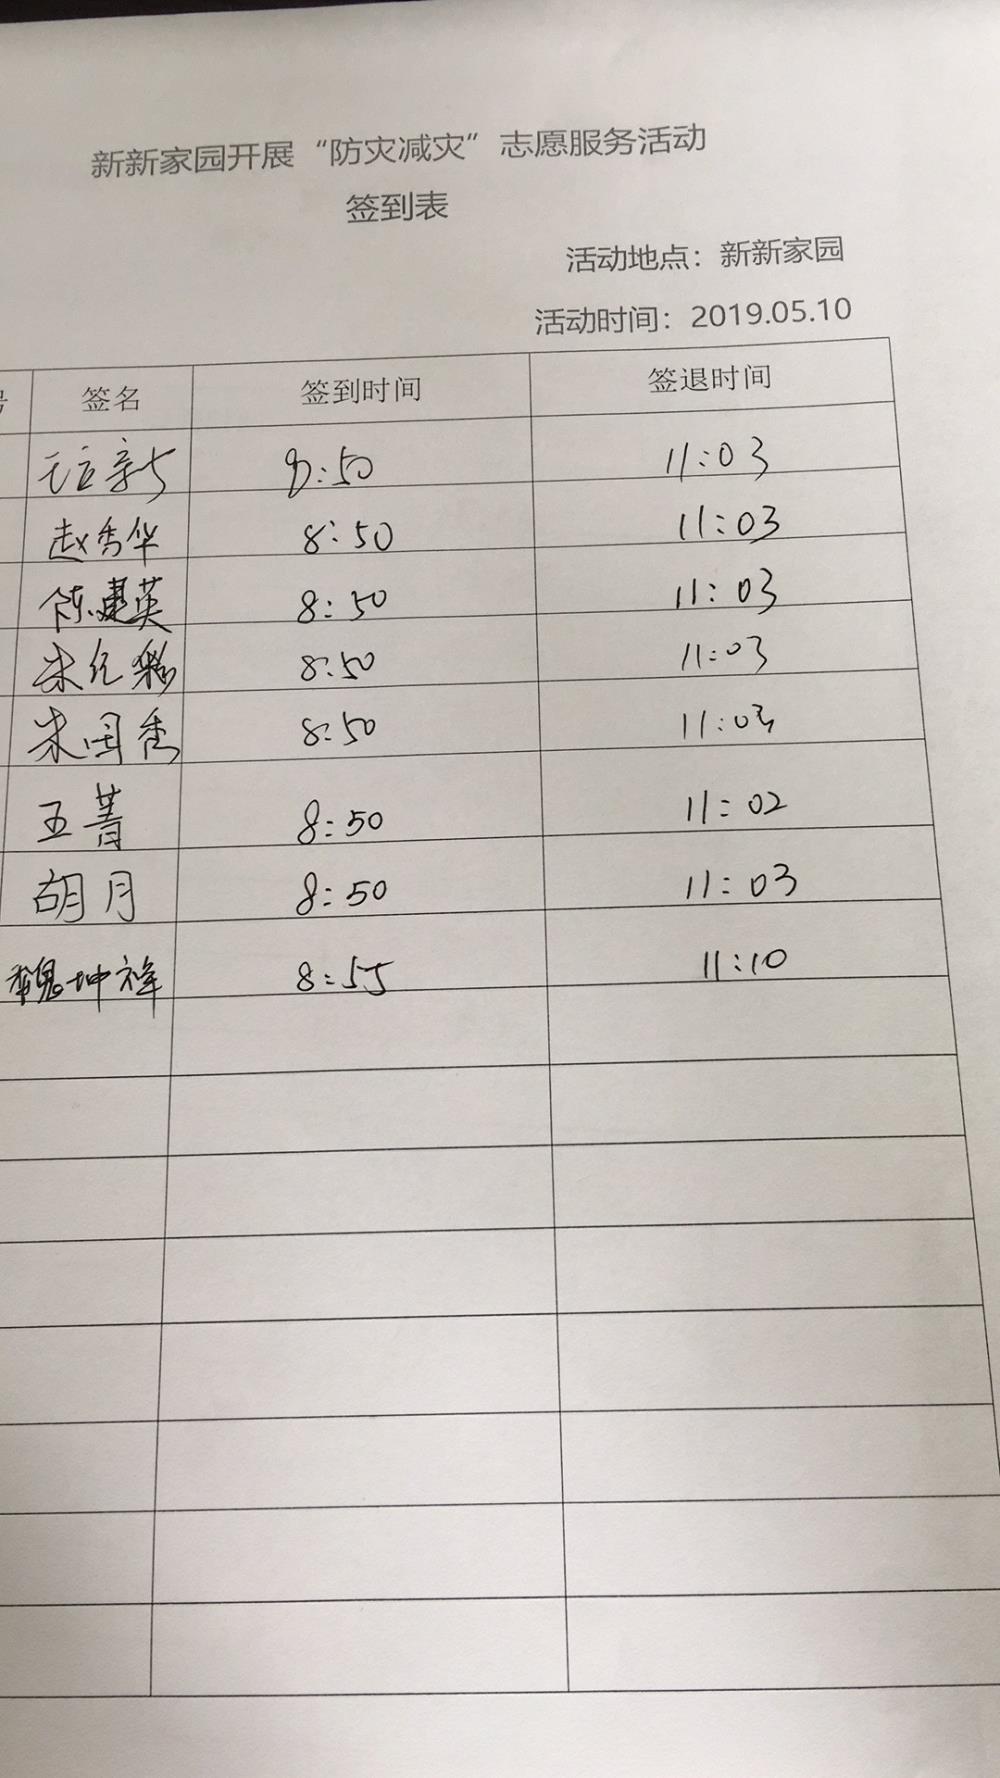 新新家园开展“防灾减灾”志愿服务活动
签到表
活动地点：新新家园
活动时间：2019.05.10
号 签名 签到时间 签退时间
8:50 11:03
赵秀华 8:50 11:03
陈建英 8:50 11:03
8:50 11:03
朱国秀 8:50 11:03
王菁 8:50 11:02
胡月 8:50 11:03
魏坤祥 8:55 11:10